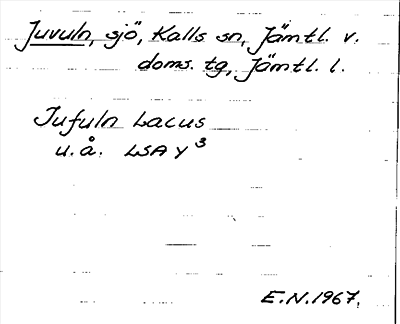 Juvuln, sjö, Kalls sn, Jämtl. v.
doms. tg, Jämtl. l.
Jufuln Lacus
u.å. LSA Y³
E.N.1967.